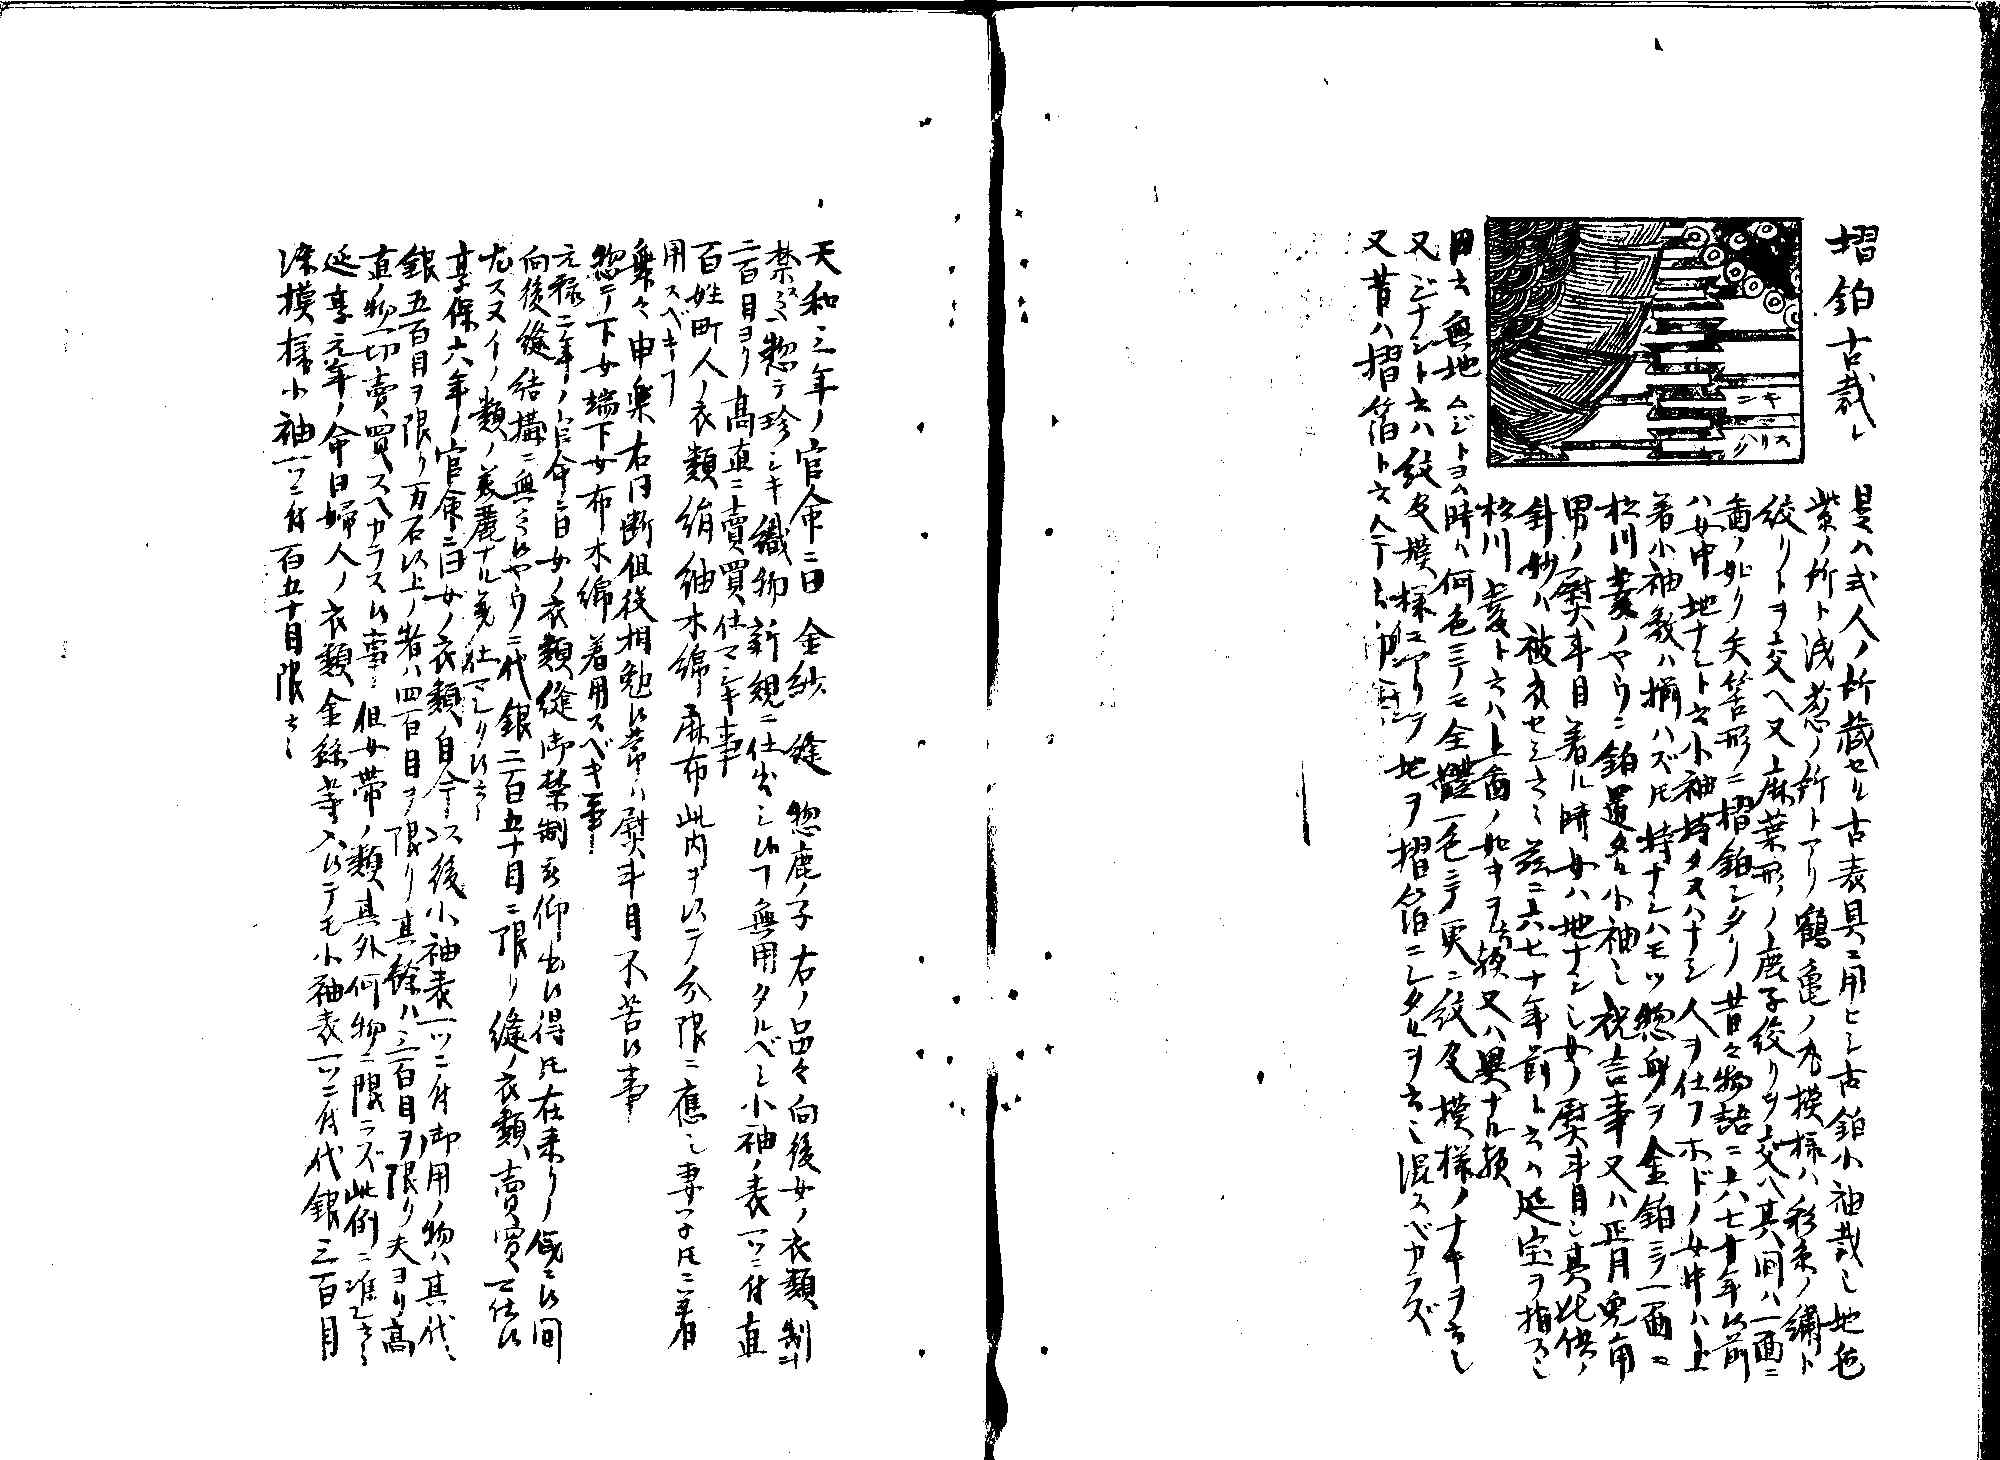 摺鉑古裁レ
ニキ
スリハク
是ハ或人ノ所蔵セル古表具ニ用ヒシ古鉑小袖裁ミ地色
紫ノ所ト浅葱ノ所トアリ鶴亀ノ丸模様ハ彩糸ノ繍ト
絞リトヲ交ヘ又麻葉形ノ鹿子絞リヲ交ヘ其間ハ一面ニ
畵ノ如ク矢筈形ニ摺鉑シタリ昔々物語ニ六七十年以前
ハ女中地ナシト云小袖持タヌハナシ人ヲ仕フホドノ女中ハ上
着小袖数ハ揃ハズ𪜈持ナシハモツ惣身ヲ金鉑ニテ一面ニ
松川菱ノヤウニ鉑置タル小袖ミ祝吉事又ハ正月兎角
男ノ熨斗目着ル時女ハ地ナシミ女ノ熨斗目ミ其比供ノ
針妙ハ被衣セシト云ミ茲ニ六七十年前ト云ハ延宝ヲ指スミ
松川菱ト云ハ上畵ノ如キヲ云歟又ハ異ナル歟
因云無地ムジトヨム時ハ何色ニテモ全體一色ニテ更ニ紋及模様ノナキヲ云ミ
又ジナシト云ハ紋及模様ニアリテ地ヲ摺箔ニシタルヲ云ミ混スベカラズ
又昔ハ摺箔ト云今云印金ミ
天和三年ノ官命ニ曰金紗縫惣鹿ノ子右ノ品々向後女ノ衣類制
禁ス惣テ珍シキ織物新規ニ仕出シ候ヿ無用タルベシ小袖ノ表一ツニ付直
二百目ヨリ高直ニ賣買仕マシキ事
百姓町人ノ衣類絹紬木綿麻布此内ヲ以テ分限ニ應シ妻子𪜈ニ着
用スベキヿ
舞々申楽右同断但役相勉候節ハ熨斗目不苦候事
惣テ下女端下女布木綿着用スベキ事
元禄二年ノ官命ニ曰女ノ衣類縫御禁制被仰出候得𪜈在来リノ儀ニ候間
向後縫結構ニ無之候ヤウニ代銀二百五十目ニ限リ縫ノ衣類賣買可仕候
尤スヌイノ類ノ美麗ナル義仕マシク候云々
享保六年ノ官命ニ曰女ノ衣類自今以後小袖表一ツニ付御用ノ物ハ其代ミ
銀五百目ヲ限リ万石以上ノ者ハ四百目ヲ限リ其餘ハ三百目ヲ限リ夫ヨリ高
直ノ物一切賣買スヘカラス候事ミ但女帯ノ類其外何物ニ限ラズ此例ニ准シ云々
延享元年ノ命曰婦人ノ衣類金絲等入候テモ小袖表一ツニ付代銀三百目
染模様小袖一ツニ付百五十目限云々